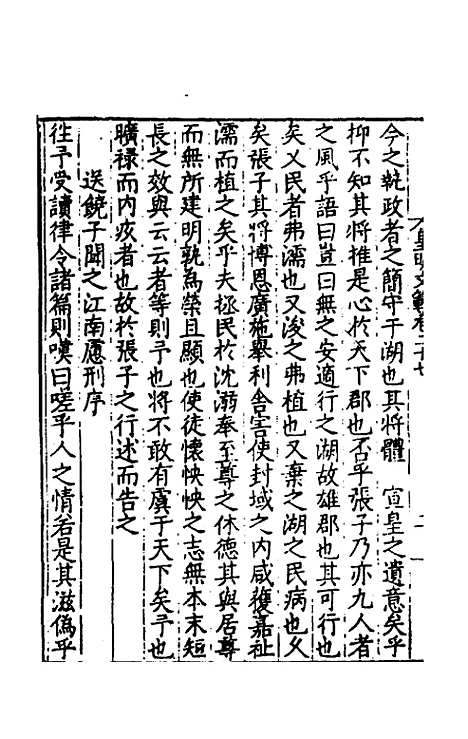 今之執政者之簡守于湖也其將體　宣皇之遺意矣乎
抑不知其將推是心於天下郡也否乎張子乃亦九人者
之風乎語曰豈曰無之安適行之湖故雄郡也其可行也
矣乂民者弗濡也又浚之弗植也又棄之湖之民病也久
矣張子其將博恩廣施舉利舎害使封域之内咸復嘉祉
濡而植之矣乎夫拯民於沈溺奉至尊之休德其與居尊
而無所建明孰為榮且顯也使徒懐怏怏之志無本末短
長之效與云云者等則予也將不敢有虞于天下矣予也
曠禄而内疚者也故於張子之行述而告之
送饒子聞之江南慮刑序
往予受讀律令諸篇則嘆曰嗟乎人之情若是其滋偽乎